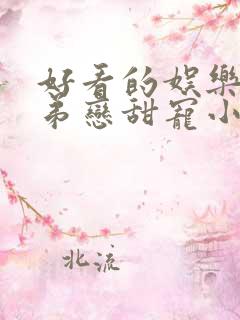 好看的娱樂
弟戀甜寵小
北流